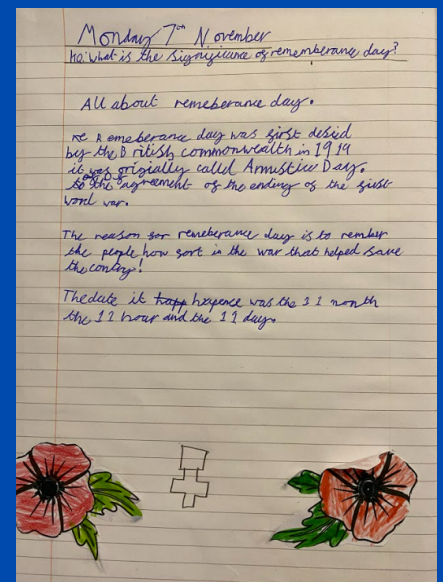 Monday 7th November
HQ: What is the significance of rememberance day?
All about remeberance day.
re Remeberance day was first desied
by the British commonwealth in 1919
it was origially called Armistice Day.
to the agreement of the ending of the first
worl war.
The reason for remeberance day is to rember
the people how fort in the war that helped save
the contry!
The date it happ hapence was the 11 month
the 11 hour and the 11 day.